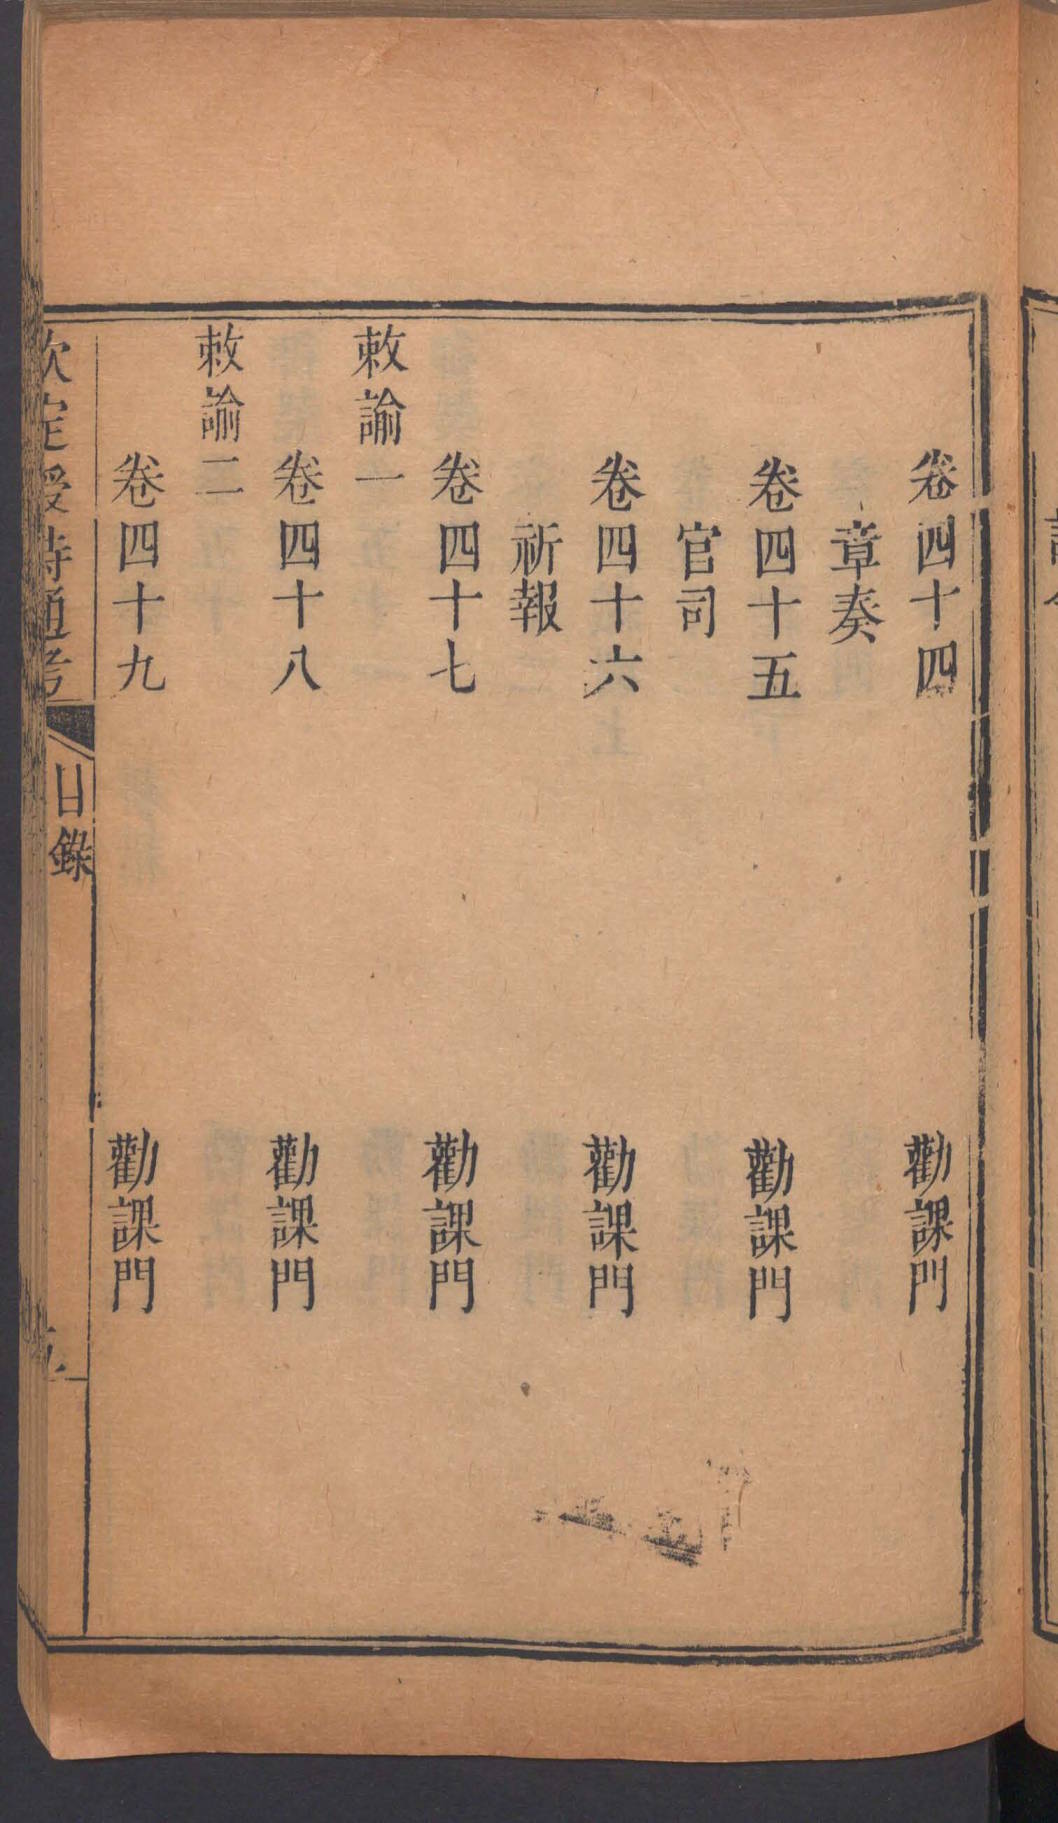 卷四十四 勸課門
章奏
卷四十五 勸課門
官司
卷四十六 勸課門
祈報
卷四十七 勸課門
敕諭一
卷四十八 勸課門
敕諭二
卷四十九 勸課門
欽定授時通考 目錄